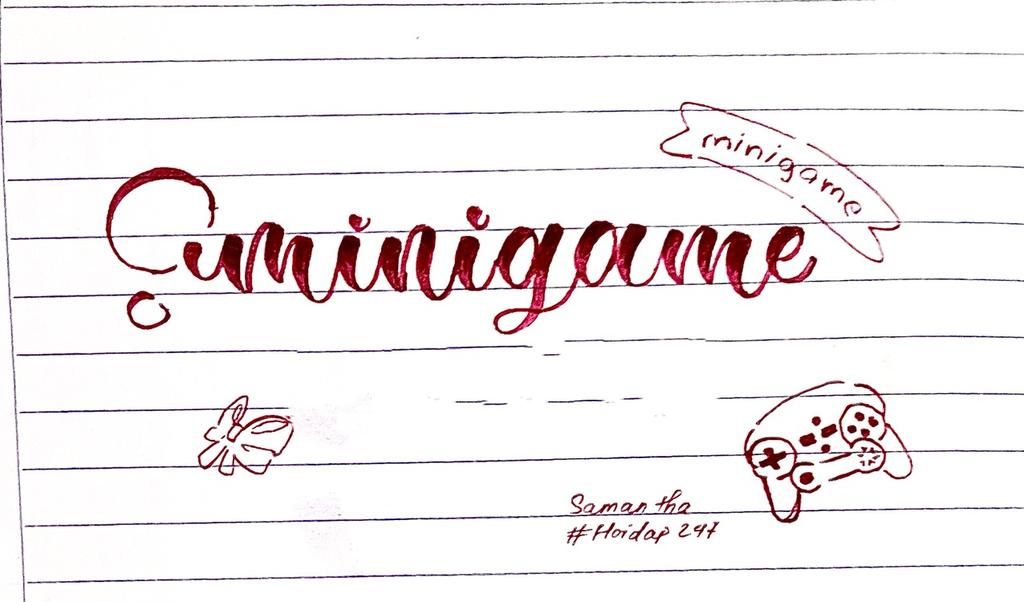 minigame
minigame
Samantha
#Hoidap247